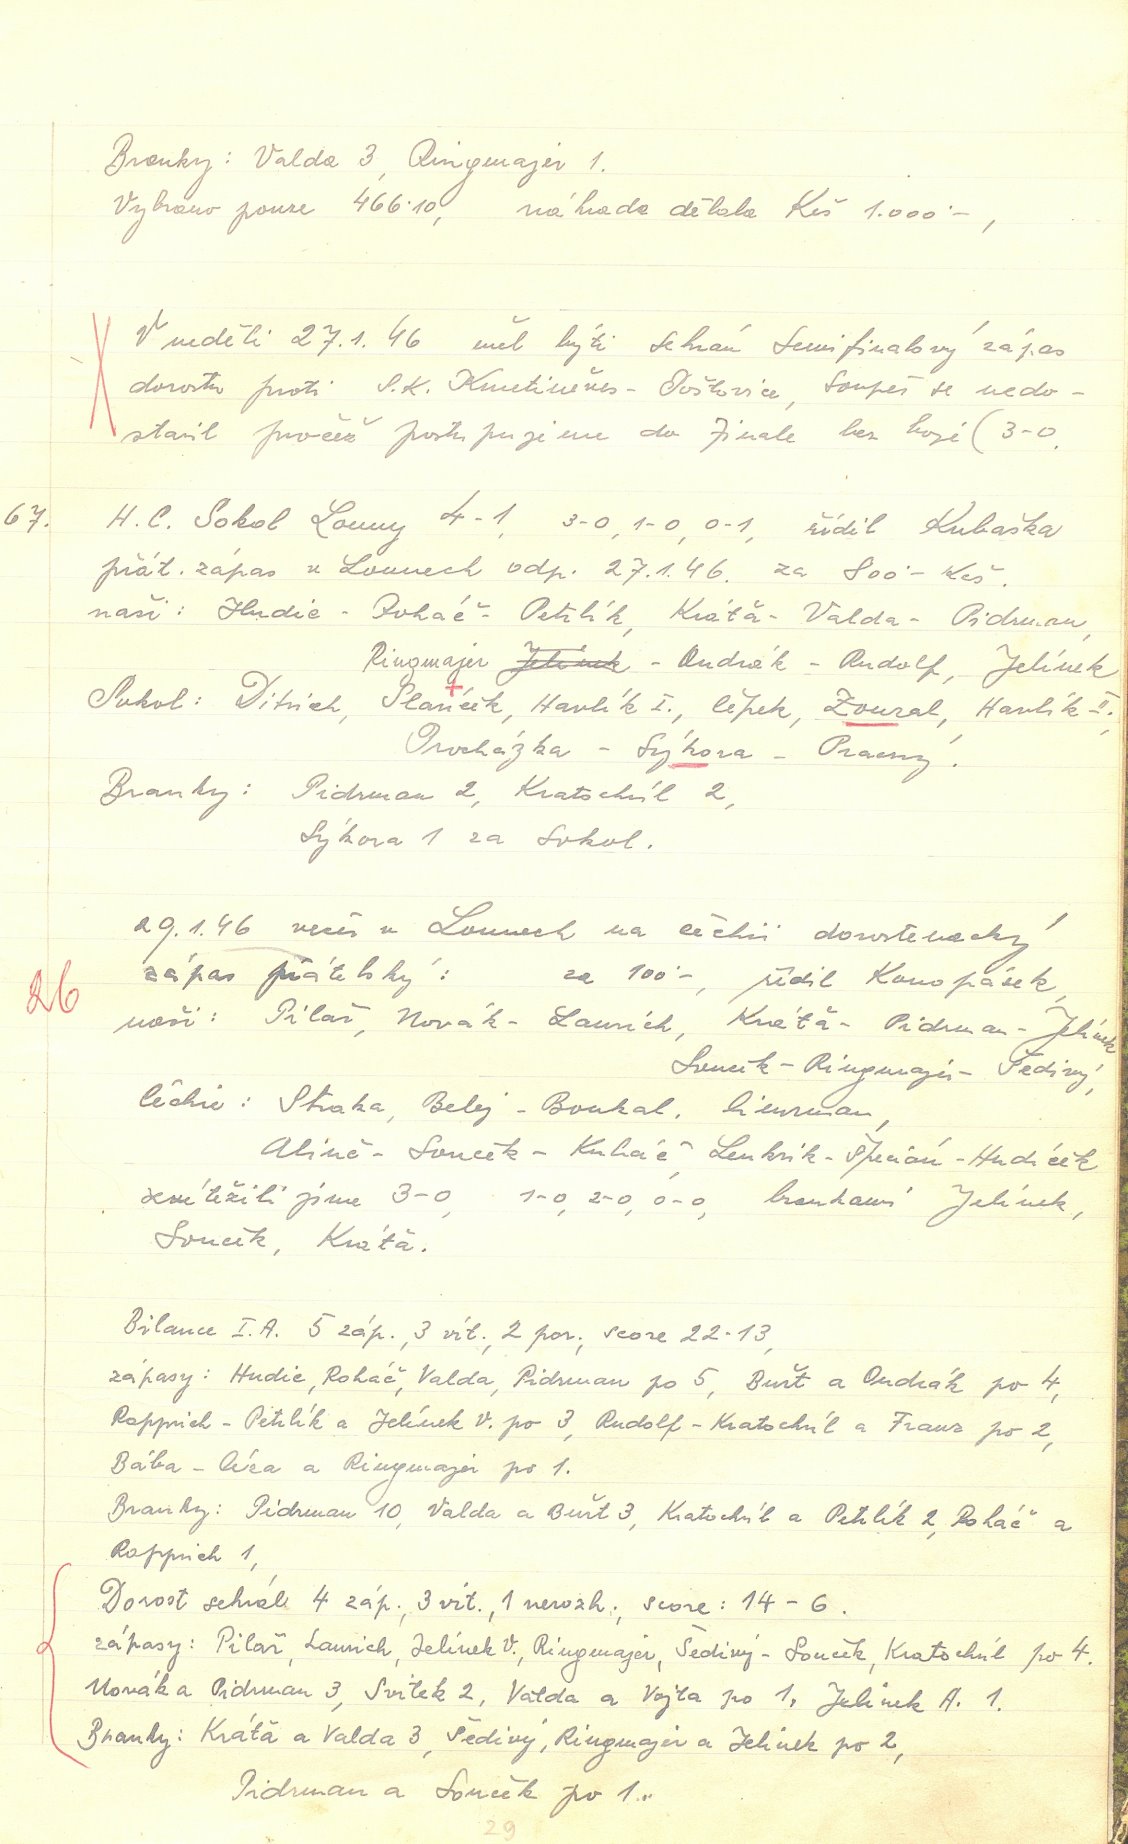 Branky: Valda 3, Ringmajer 1.
Vybrano pouze 466·10, náhrada dělala Kčs 1.000·-,
V neděli 27.1.46 měl býti sehrán semifinalový zápas
dorostu proti S.K. Kmetiněves - Poštovice, Soupeř se nedo-
stavil pročež postupujeme do finale bez boje (3-0.
67. H.C. Sokol Louny 4-1, 3-0, 1-0, 0-1, řídil Kubaška
přát. zápas v Lounech odp. 27.1.46. za 800·- Kčs.
naši: Hudic - Roháč - Petrlík, Krátă - Valda - Pidrman,
Ringmajer Jelínek - Ondrák - Rudolf, Jelínek
Sokol: Ditrich, Slaníček, Havlík I., Čépek, Zouzal, Havlík II.,
Procházka - Sýkora - Pracný.
Branky: Pidrman 2, Kratochvíl 2,
Sýkora 1 za Sokol.
29.1.46 večer v Lounech na Čechii dorostenecký
26 zápas přátelský: za 100·-, řídil Konopásek,
naši: Pilař, Novák - Laurich, Krátă - Pidrman - Jelínek
Souček - Ringmajer - Šedivý,
Čechie: Straka, Belej - Boukal,
Alinč - Souček - Kubáč, - Hudíček
zvítězili jsme 3-0, 1-0, 2-0, 0-0, brankami Jelínek,
Souček, Krátă.
Bilance I.A. 5 záp., 3 vít., 2 por., score 22-13,
zápasy: Hudic, Roháč, Valda, Pidrman po 5, Buřt a Ondrák po 4,
Rapprich - Petrlík a Jelínek V. po 3, Rudolf - Kratochvíl a Franz po 2,
Bába - Céza a Ringmajer po 1.
Branky: Pidrman 10, Valda a Buřt 3, Kratochvíl a Petrlík 2, Roháč a
Rapprich 1,
Dorost sehrál 4 záp., 3 vít., 1 nerozh., score: 14 - 6.
zápasy: Pilař, Laurich, Jelínek V., Ringmajer, Šedivý - Souček, Kratochvíl po 4.
Novák a Pidrman 3, Svitek 2, Valda a Vojta po 1, Jelínek A. 1.
Branky: Krátă a Valda 3, Šedivý, Ringmajer a Jelínek po 2,
Pidrman a Souček po 1.
29